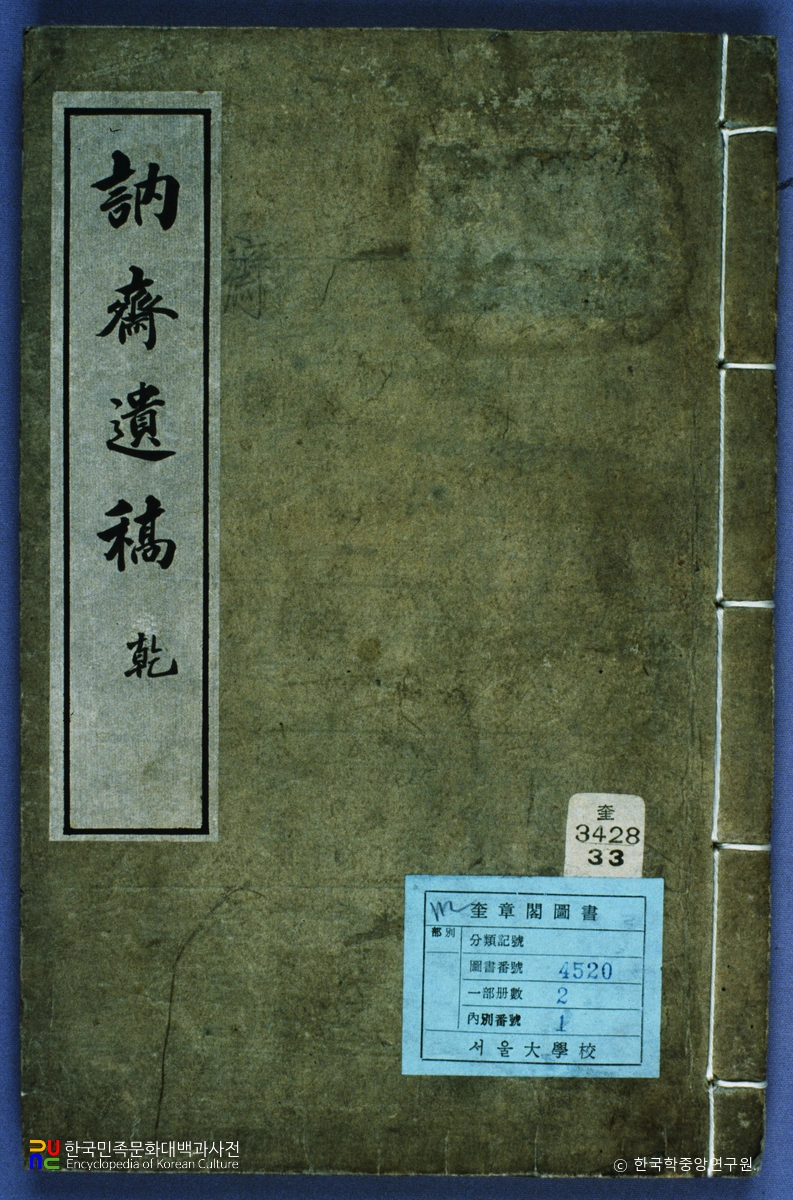 訥齋遺稿 乾
齋
奎
3428
33
奎章閣圖書
部別
分類記號
圖書番號 4520
一部册數 2
內別番號 1
서울大學校
한국민족문화대백과사전
Encyclopedia of Korean Culture
© 한국학중앙연구원